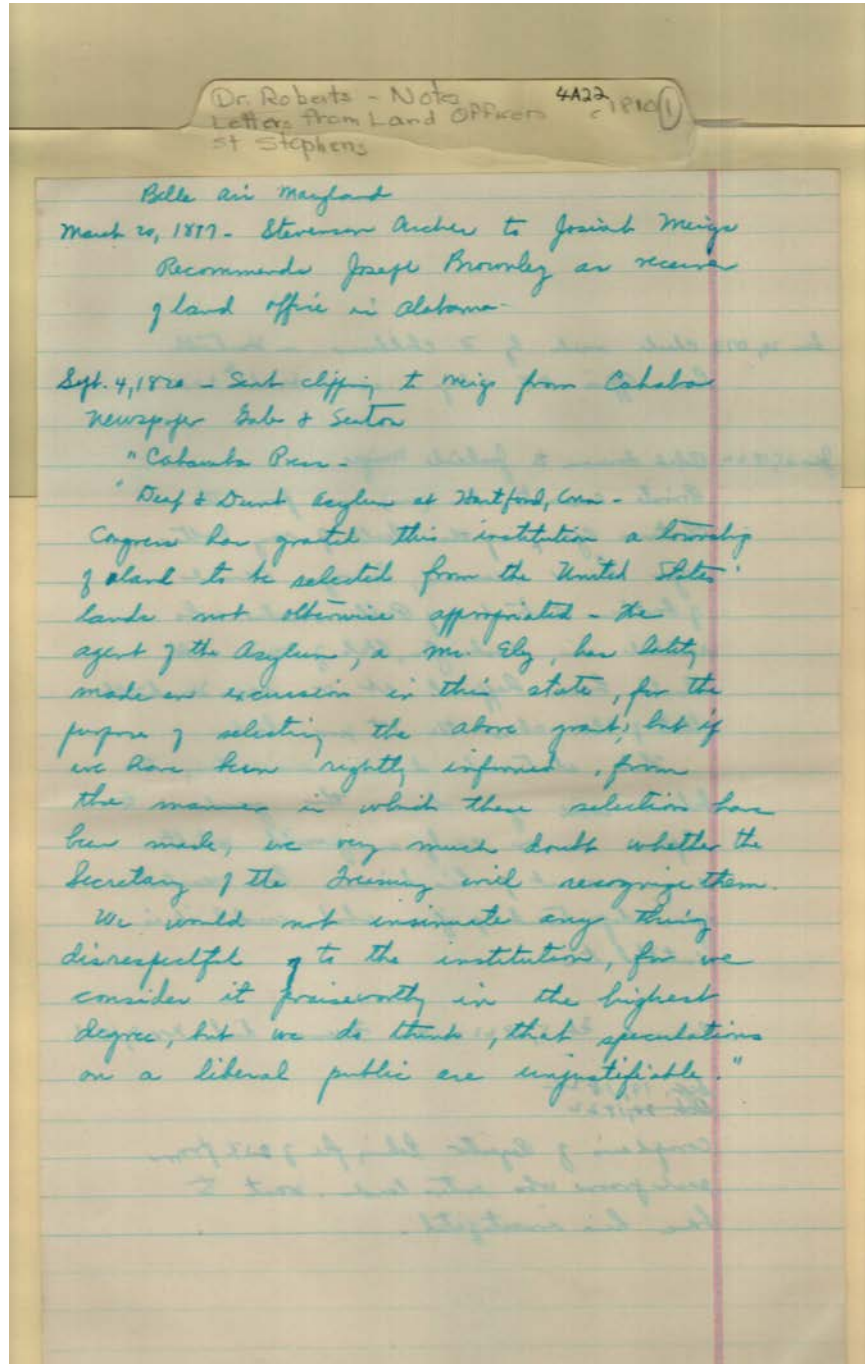 Dr. Roberts - Note 4A22 c 1810 (1)
Letters from Land Officers
St Stephens
Belle air Maryland
March 20, 1817 - Stevenson Archer to Josiah Meigs
Recommends Joseph Brownley as receiver
of land office in Alabama -
Sept. 4, 1820 - Sent clipping to Meigs from Cahaba
newspaper Gales & Seaton
"Cahawba Press -
"Deaf & Dumb Asylum at Hartford, Conn -
Congress has granted this institution a township
of land to be selected from the United States'
lands not otherwise appropriated - the
agent of the Asylum, a Mr. Ely, has lately
made an excursion in this state, for the
purpose of selecting the above grant; but if
we have been rightly informed, from
the manner in which these selections have
been made, we very much doubt whether the
Secretary of the Treasury will recognize them.
We would not insinuate any thing
disrespectful to the institution, for we
consider it praiseworthy in the highest
degree, but we do think, that speculations
on a liberal public are unjustifiable."